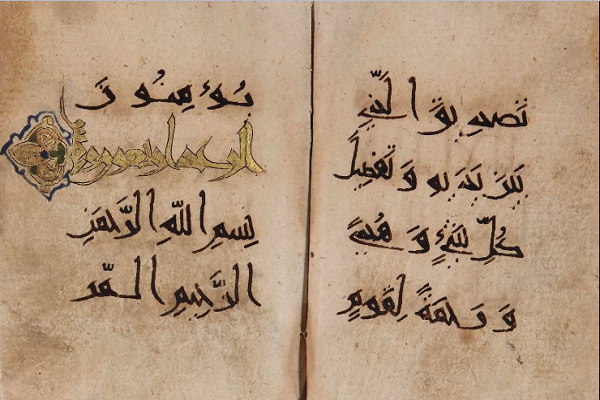 تَصْدِيقَ الَّذِي
بَيْنَ يَدَيْهِ وَتَفْصِيلَ
كُلِّ شَيْءٍ وَهُدًى
وَرَحْمَةً لِقَوْمٍ
يُؤْمِنُونَ
الرعد
بِسْمِ اللَّهِ الرَّحْمَنِ
الرَّحِيمِ الـمّر